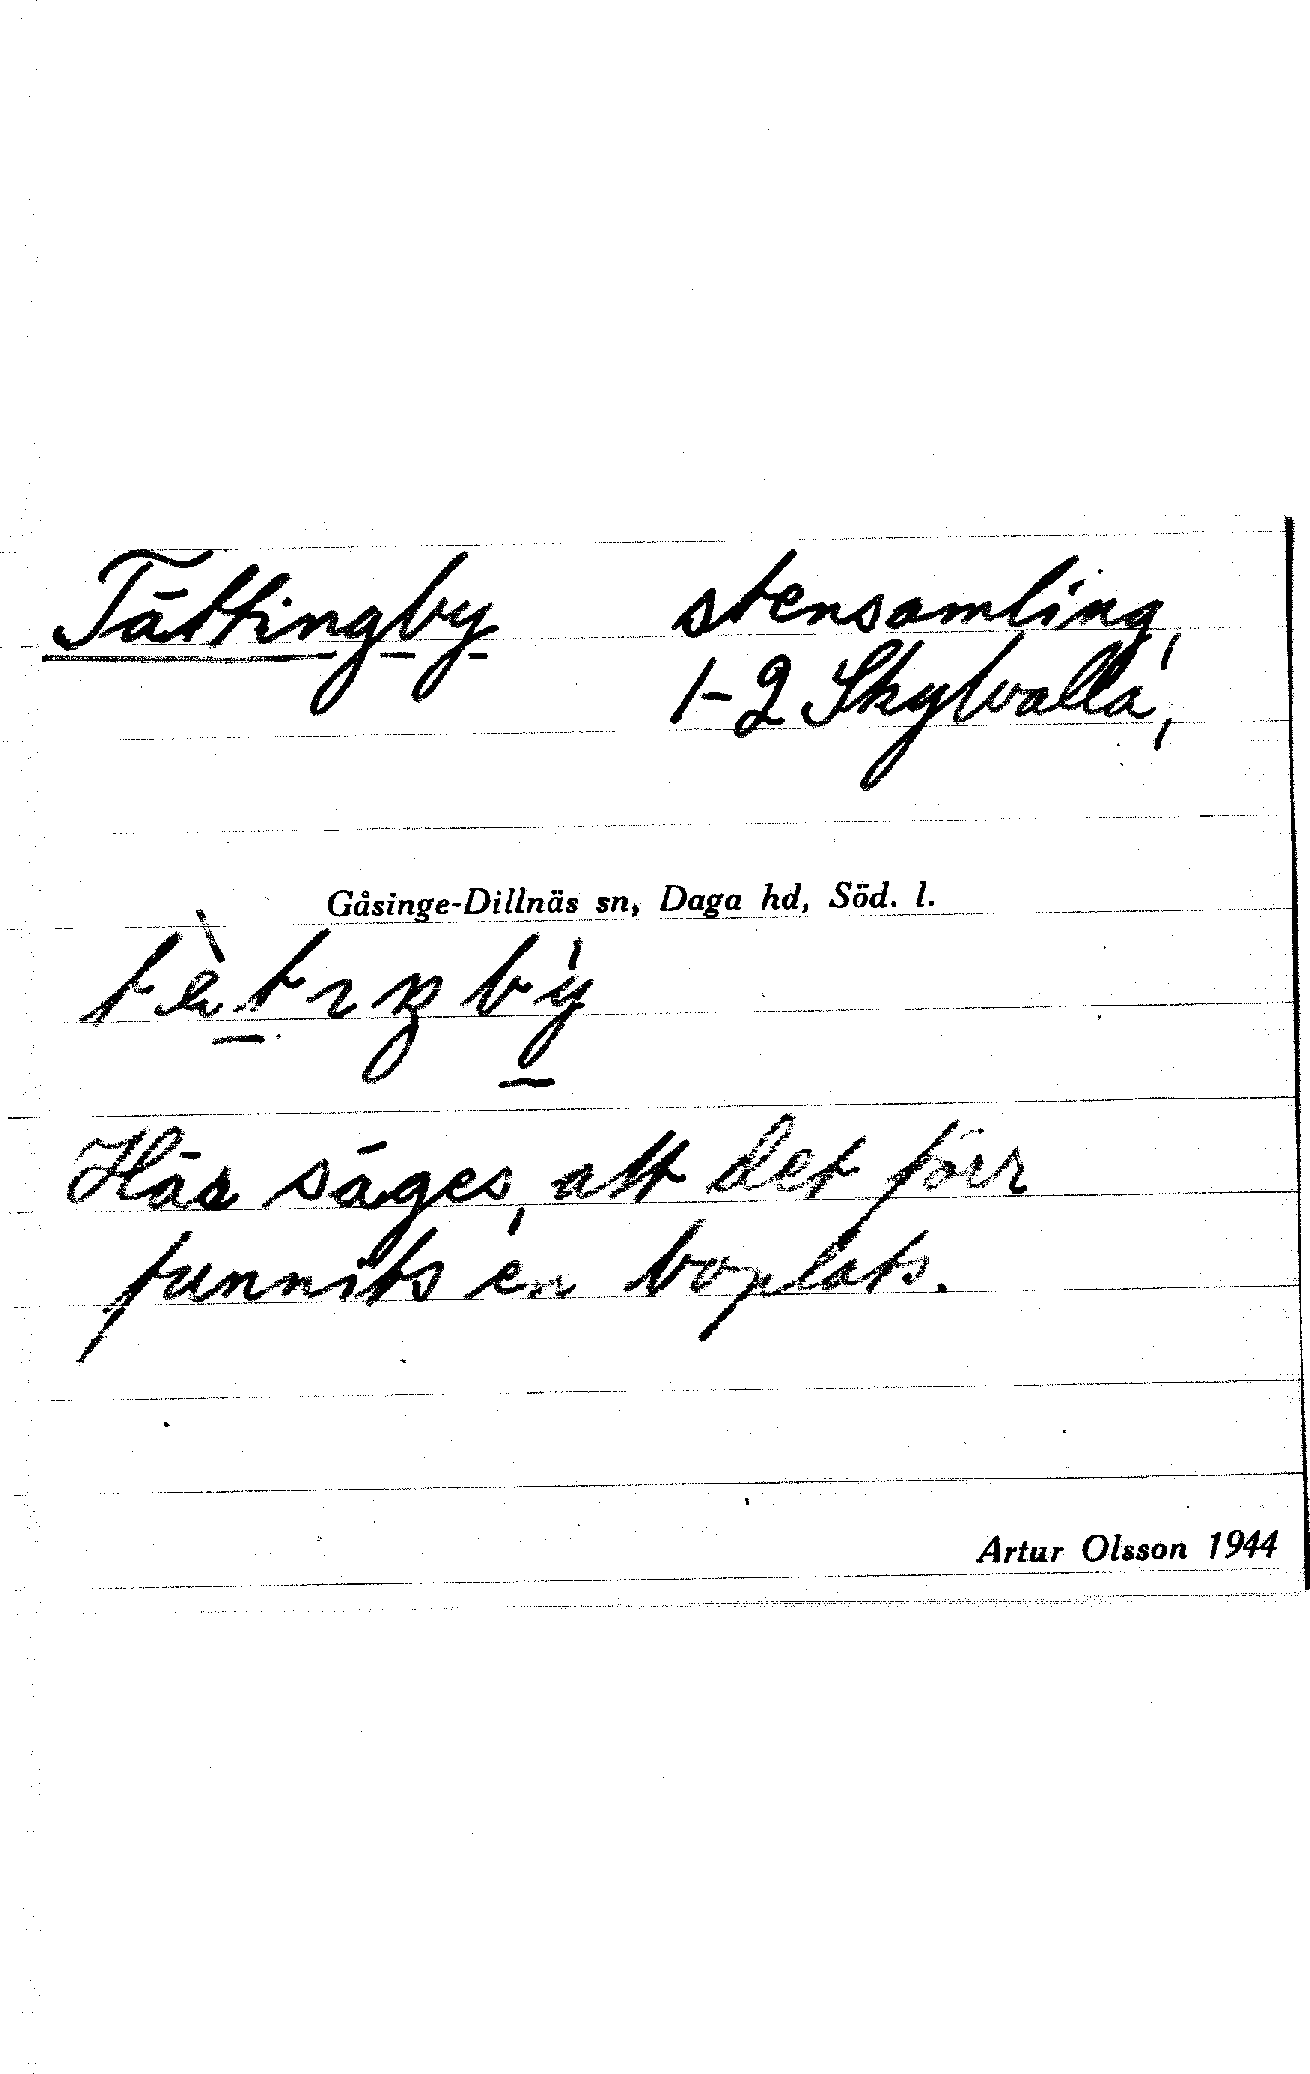 Tättingby stensamling,
1-2 Skylvalla,
Gåsinge-Dillnäs sn, Daga hd, Söd. l.
Här säges, att det förr
funnits en boplats.
Artur Olsson 1944